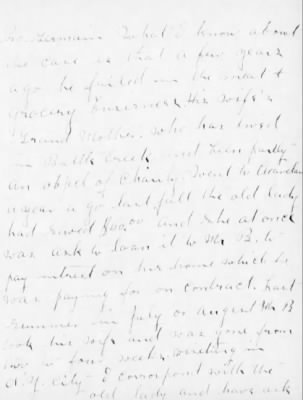 What I know about
the case is that a few years
ago he failed in the meat &
Grocery business. His wife's
Grand Mother, who has lived
in Battle Creek and been partly
an object of Charity, went to Cleveland
a year ago last fall the old lady
had saved and she at once
was ask to loan it to Mr B. to
pay interest on his home which he
was paying for on contract. Last
Summer in july or august Mr B
took his wife and was gone from
two or four weeks, visiting in
N.Y. City I correspont with the
old lady and have ask